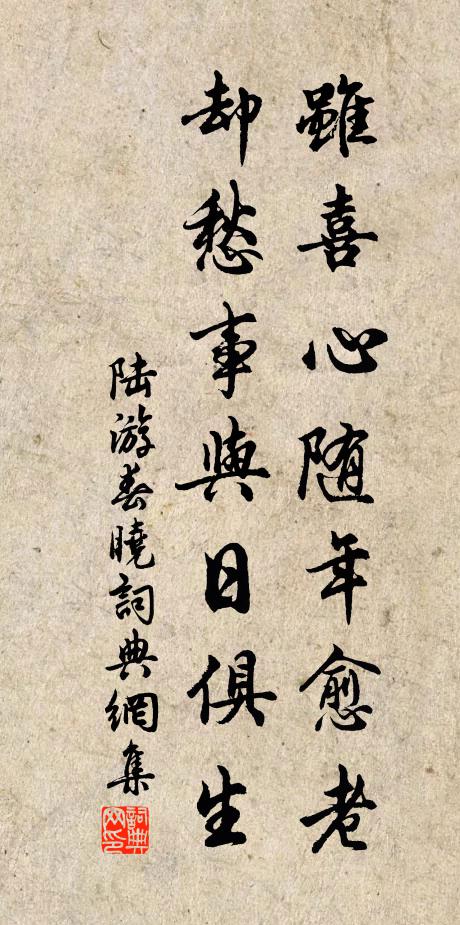 雖喜心随年愈老
却愁事與日俱生
陆游春曉詞典網集
詞典网印